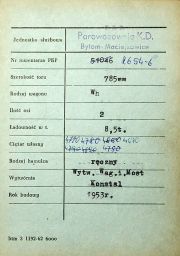 P.K.P.
Jednostka służbowa
Parowozownia K.D.
Bytom-Maciejkowice
Nr inwentarza PKP 8654-6
Szerokość toru 785mm
Rodzaj wagonu Wh
Ilość osi 2
Ładowność w t. 8,5t.
Ciężar własny 4780 4670
4790
Rodzaj hamulca ręczny
Wytwórnia Wytw. Wag. i Most
Konstal
Rok budowy 1953r.